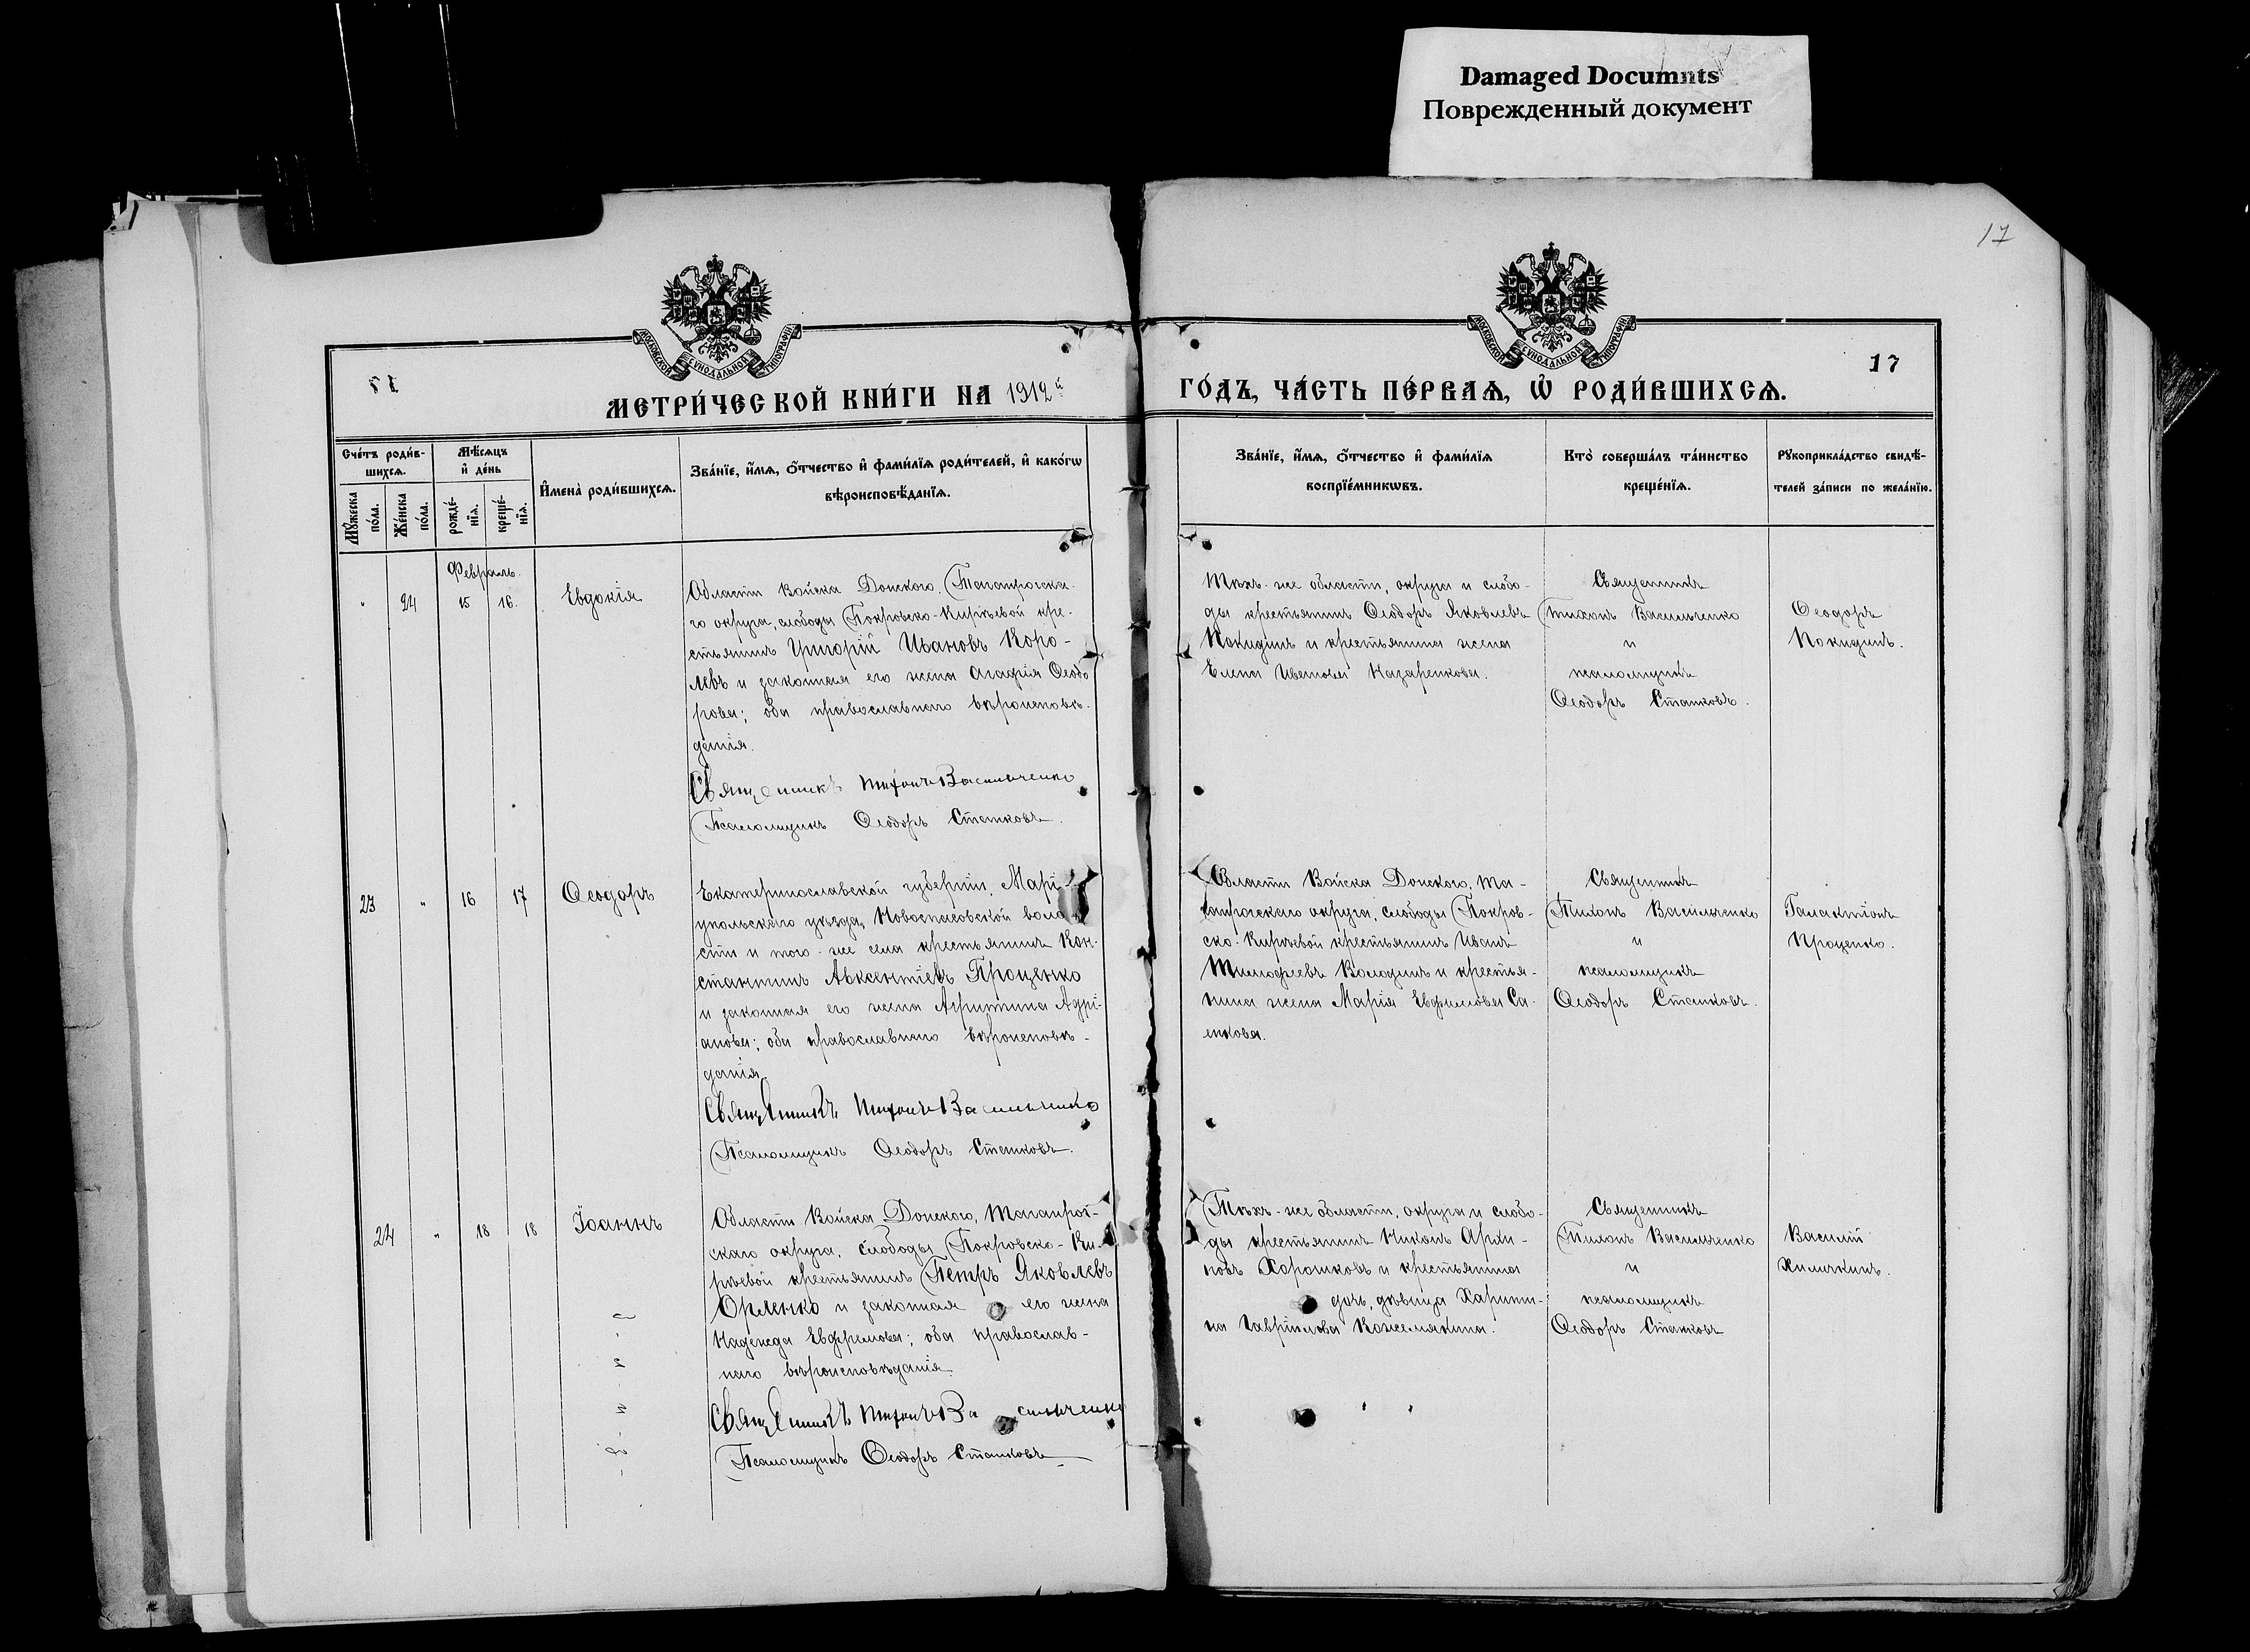 Damaged Documnts
Поврежденный документ
17
МОСКОВСКОЙ СѴНОДАЛЬНОЙ ТИПОГРАФІИ
МОСКОВСКОЙ СѴНОДАЛЬНОЙ ТИПОГРАФІИ
17
МЕТРИ́ЧЕСКОЙ КНИ́ГИ НА 1912й
ГО́ДЪ, ЧА́СТЬ ПЕ́РВАѦ, Ѡ҆ РОДИ́ВШИХСѦ.
Сче́тъ роди́в-
шихсѧ.
Мѣ́сѧцъ
и҆ де́нь
И҆мена̀ роди́вшихсѧ.
Зва́нїе, и҆́мѧ, ѻ҆́тчество и҆ фами́лїѧ роди́телей, и҆ како́гѡ
вѣроисповѣ́данїѧ.
Мꙋ́жеска
по́ла.
Же́нска
по́ла.
рожде́-
нїѧ.
креще́-
нїѧ.
Зва́нїе, и҆́мѧ, ѻ҆́тчество и҆ фами́лїѧ
воспрїе́мникѡвъ.
Кто̀ соверша́лъ та́инство
креще́нїѧ.
Рꙋкоприкла́дство свидѣ́-
телей за́писи по жела́нїю.
Февраль.
" 24 15 16. Евдокія
Области Войска Донского, Таганрогска-
го округа, слободы Покровско-Кирѣевой кре-
стьянинъ Григорій Ивановъ Коро-
левъ и законная его жена Агафія Ѳеодо
рова; оба православнаго вѣроисповѣ-
данія.
Священникъ Тихонъ Васильченко
Псаломщикъ Ѳеодоръ Станковъ.
Тѣхъ-же области, округа и слобо-
ды крестьянинъ Ѳеодоръ Яковлевъ
Покидинъ и крестьянина жена
Елена Иванова Назаренкова.
Священникъ
Тихонъ Васильченко
и
псаломщикъ
Ѳеодоръ Станковъ.
Ѳеодоръ
Покидинъ.
23 " 16 17 Ѳеодоръ
Екатеринославской губерніи, Марі
упольскаго уѣзда, Новоспасовской воло
сти и того-же села крестьянинъ Кон-
стантинъ Авксентіевъ Проценко
и законная его жена Агриппина Адрі-
анова; оба православнаго вѣроисповѣ-
данія.
Священникъ Тихонъ Васильченко
Псаломщикъ Ѳеодоръ Станковъ.
Области Войска Донского, Та-
ганрогскаго округа, слободы Покров-
ско-Кирѣевой крестьянинъ Иванъ
Тимофеевъ Володинъ и крестья-
нина жена Марія Евфимова Са-
енкова.
Священникъ
Тихонъ Васильченко
и
псаломщикъ
Ѳеодоръ Станковъ.
Галактіонъ
Проценко.
24 " 18 18 Іоаннъ
Области Войска Донского, Таганрог-
скаго округа, слободы Покровско-Ки-
рѣевой крестьянинъ Петръ Яковлевъ
Орленко и законная его жена
Надежда Евфремова; оба православ-
наго вѣроисповѣданія.
Священникъ Тихонъ Васильченко
Псаломщикъ Ѳеодоръ Станковъ
Тѣхъ-же области, округа и слобо-
ды крестьянинъ Никонъ Архи-
повъ Хорошковъ и крестьянина
дочь, дѣвица Харити-
на Гавріилова Кожемякина.
Священникъ
Тихонъ Васильченко
и
псаломщикъ
Ѳеодоръ Станковъ
Василій